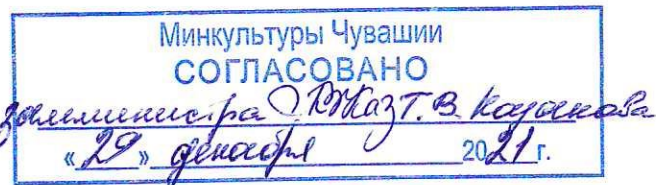 Минкультуры Чувашии
СОГЛАСОВАНО
замминистра Т.В. Казакова
«29» декабря 2021 г.